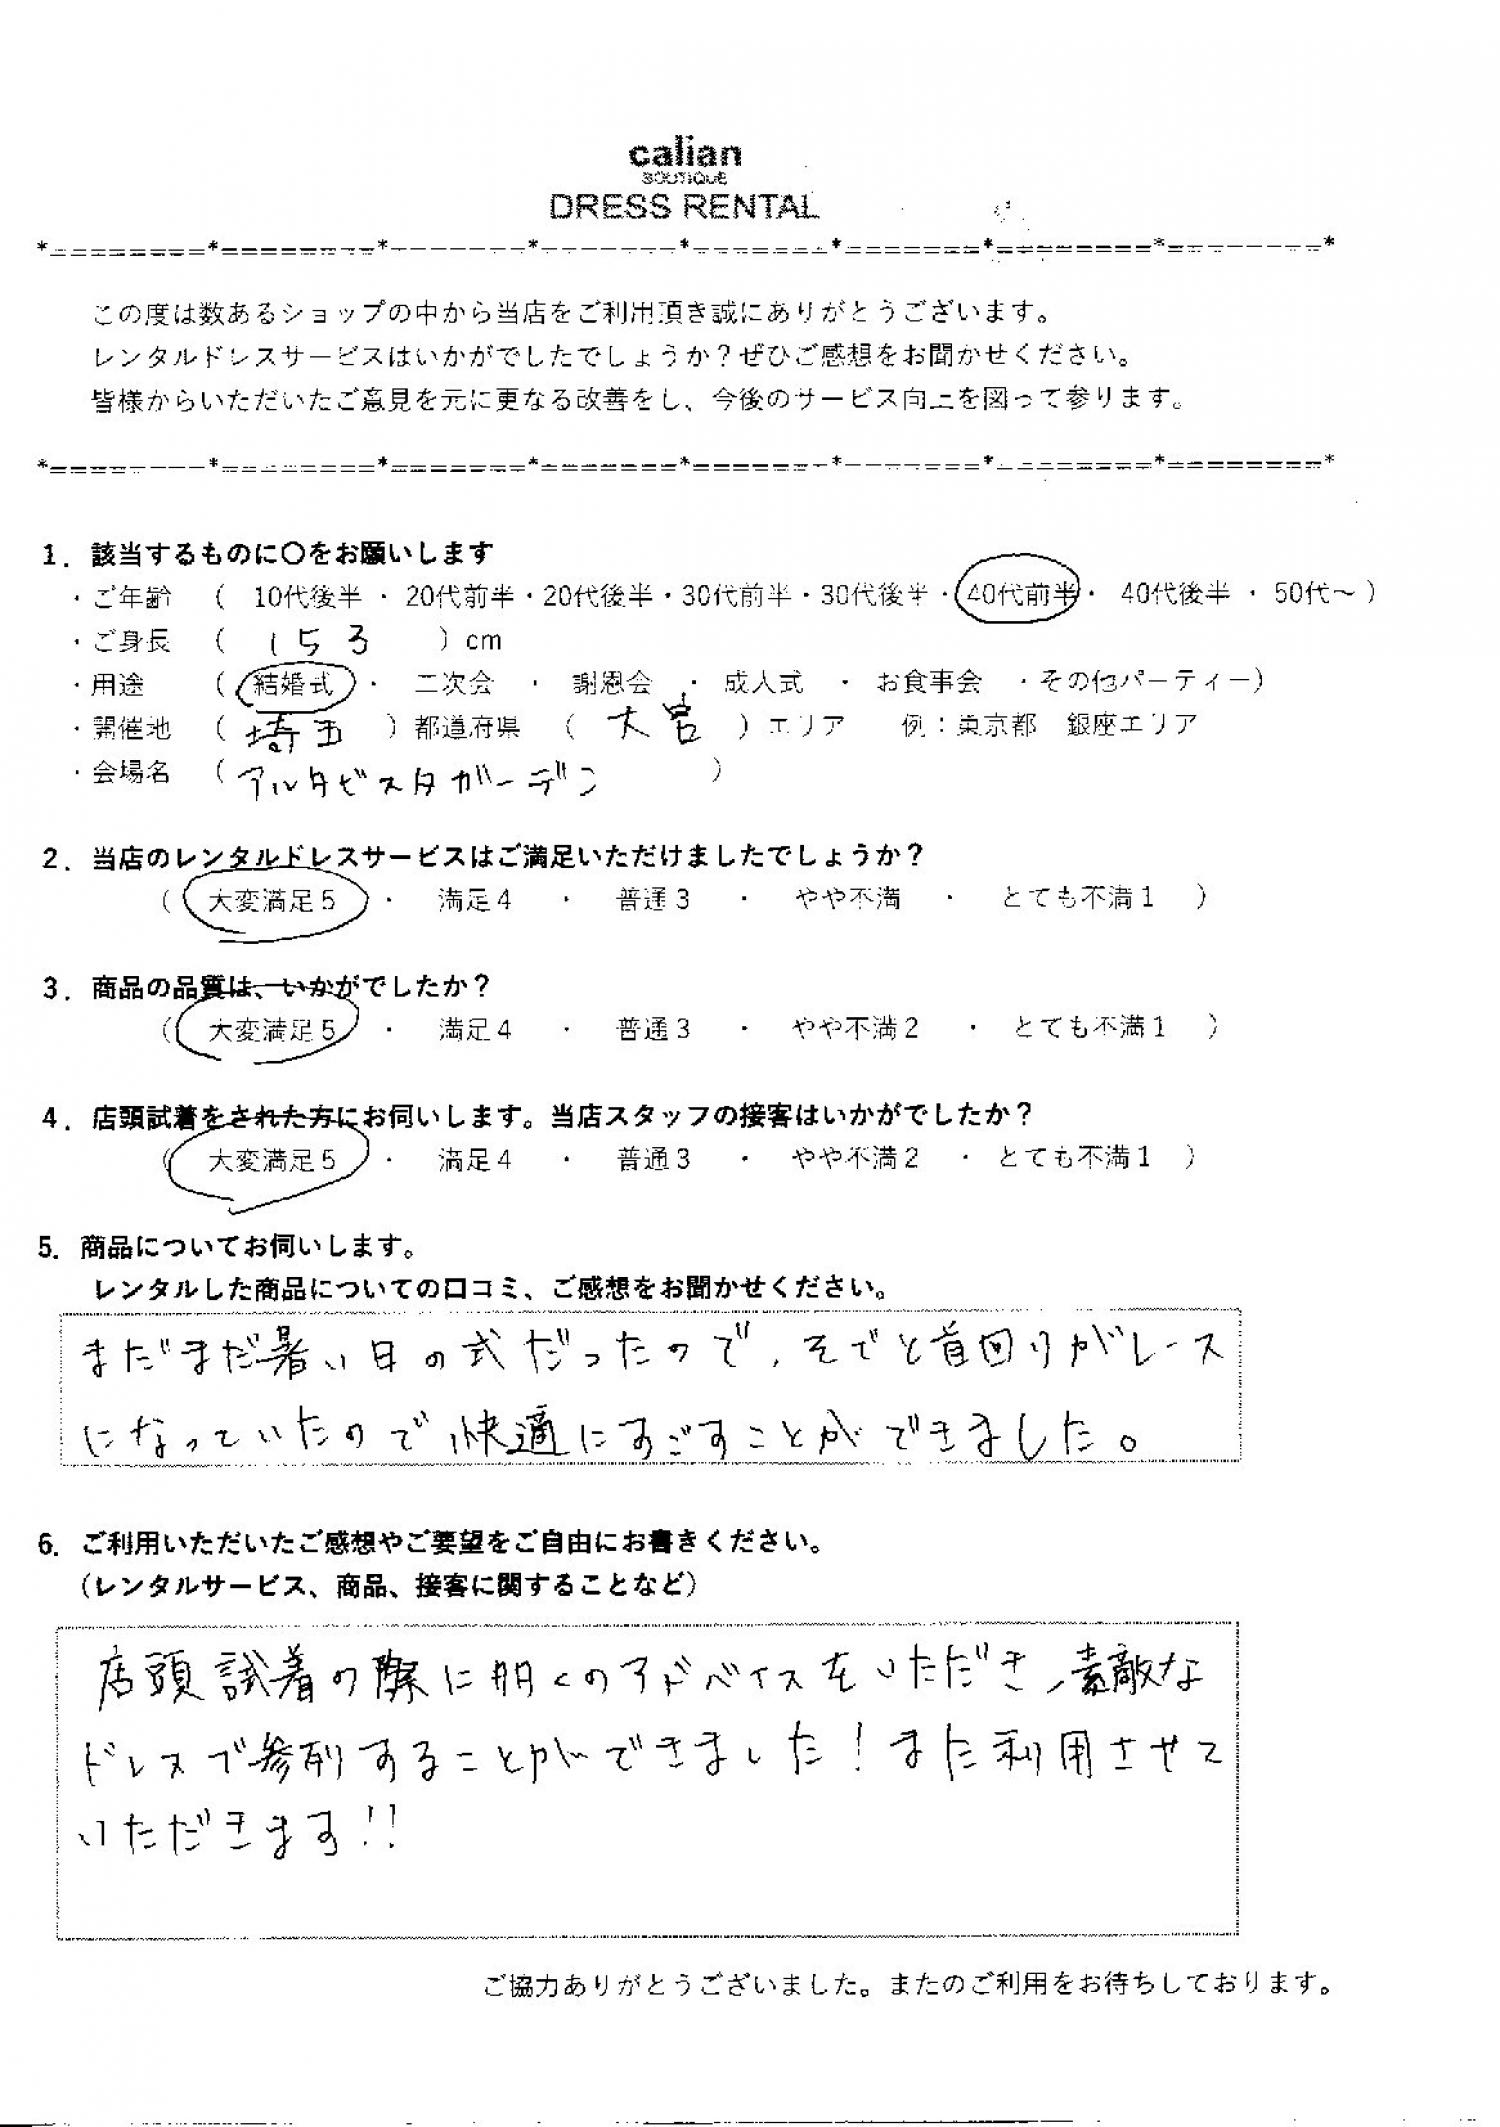 calian
BOUTIQUE
DRESS RENTAL
*========*========*=======*=======*=======*=======*========*========*
この度は数あるショップの中から当店をご利用頂き誠にありがとうございます。
レンタルドレスサービスはいかがでしたでしょうか？ぜひご感想をお聞かせください。
皆様からいただいたご意見を元に更なる改善をし、今後のサービス向上を図って参ります。
*========*========*=======*=======*=======*=======*========*========*
1．該当するものに〇をお願いします
・ご年齢　（　10代後半 ・ 20代前半・20代後半・30代前半・30代後半・40代前半・ 40代後半 ・ 50代～ ）
・ご身長　（　153　）cm
・用途　（ 結婚式 ・ 二次会 ・ 謝恩会 ・ 成人式 ・ お食事会 ・その他パーティー）
・開催地　（ 埼玉 ）都道府県　（ 大宮 ）エリア　例：東京都　銀座エリア
・会場名　（ アルタビスタガーデン ）
2．当店のレンタルドレスサービスはご満足いただけましたでしょうか？
（ 大変満足５ ・ 満足４ ・ 普通３ ・ やや不満 ・ とても不満１ ）
3．商品の品質は、いかがでしたか？
（ 大変満足５ ・ 満足４ ・ 普通３ ・ やや不満２ ・ とても不満１ ）
4．店頭試着をされた方にお伺いします。当店スタッフの接客はいかがでしたか？
（ 大変満足５ ・ 満足４ ・ 普通３ ・ やや不満２ ・ とても不満１ ）
5．商品についてお伺いします。
レンタルした商品についての口コミ、ご感想をお聞かせください。
まだまだ暑い日の式だったので、そでと首回りがレース
になっていたので快適にすごすことができました。
6．ご利用いただいたご感想やご要望をご自由にお書きください。
（レンタルサービス、商品、接客に関することなど）
店頭試着の際に多くのアドバイスをいただき、素敵な
ドレスで参列することができました！また利用させて
いただきます!!
ご協力ありがとうございました。またのご利用をお待ちしております。